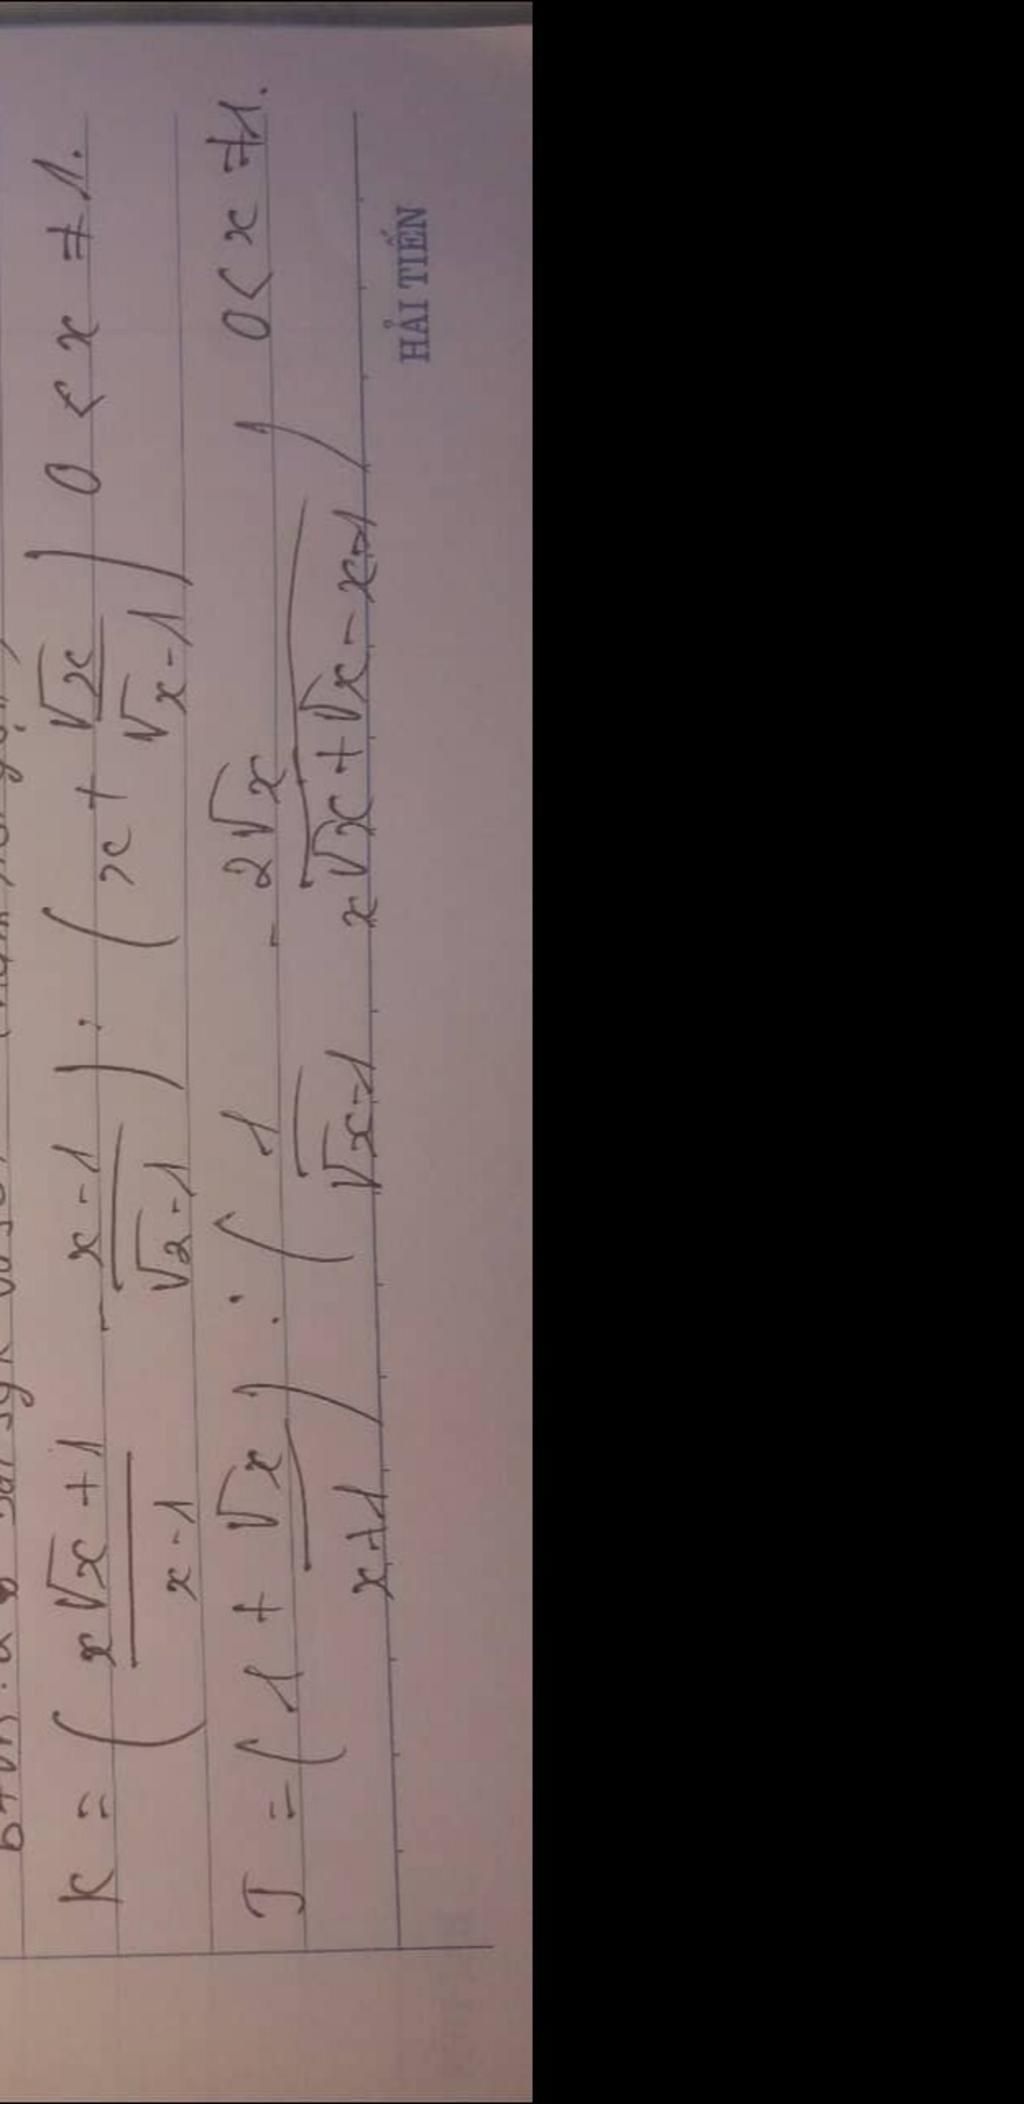 K = ( x√x + 1 / x - 1 - x - 1 / √2 - 1 ) : ( x + √x / √x - 1 ) 0 < x ≠ 1.
J = ( 1 + √x / x + 1 ) : ( 1 / √x - 1 - 2√x / x√x + √x - x - 1 ) 0 < x ≠ 1.
HẢI TIẾN